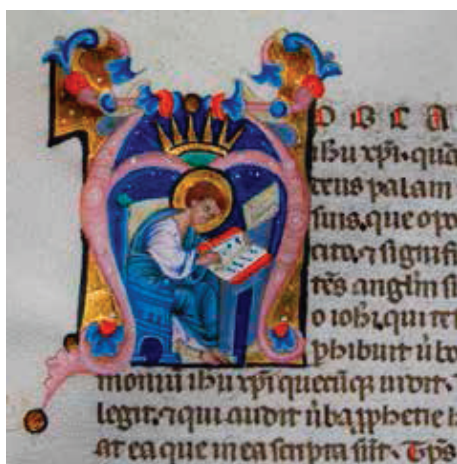 P O C A
ihu xpi. quã
deus palam
suis. que opo
cito. ⁊ signifi
tẽs anglm su
o iohi. qui test
phibuit ũbo
moniũ ihu xpi quecũq; uidit.
legit. ⁊ qui audit ũba ꝓphetie h
at ea que in ea scripta sũt. Tps